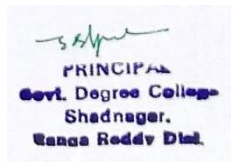 PRINCIPAL
Govt. Degree College
Shadnagar.
Ranga Reddy Dist.